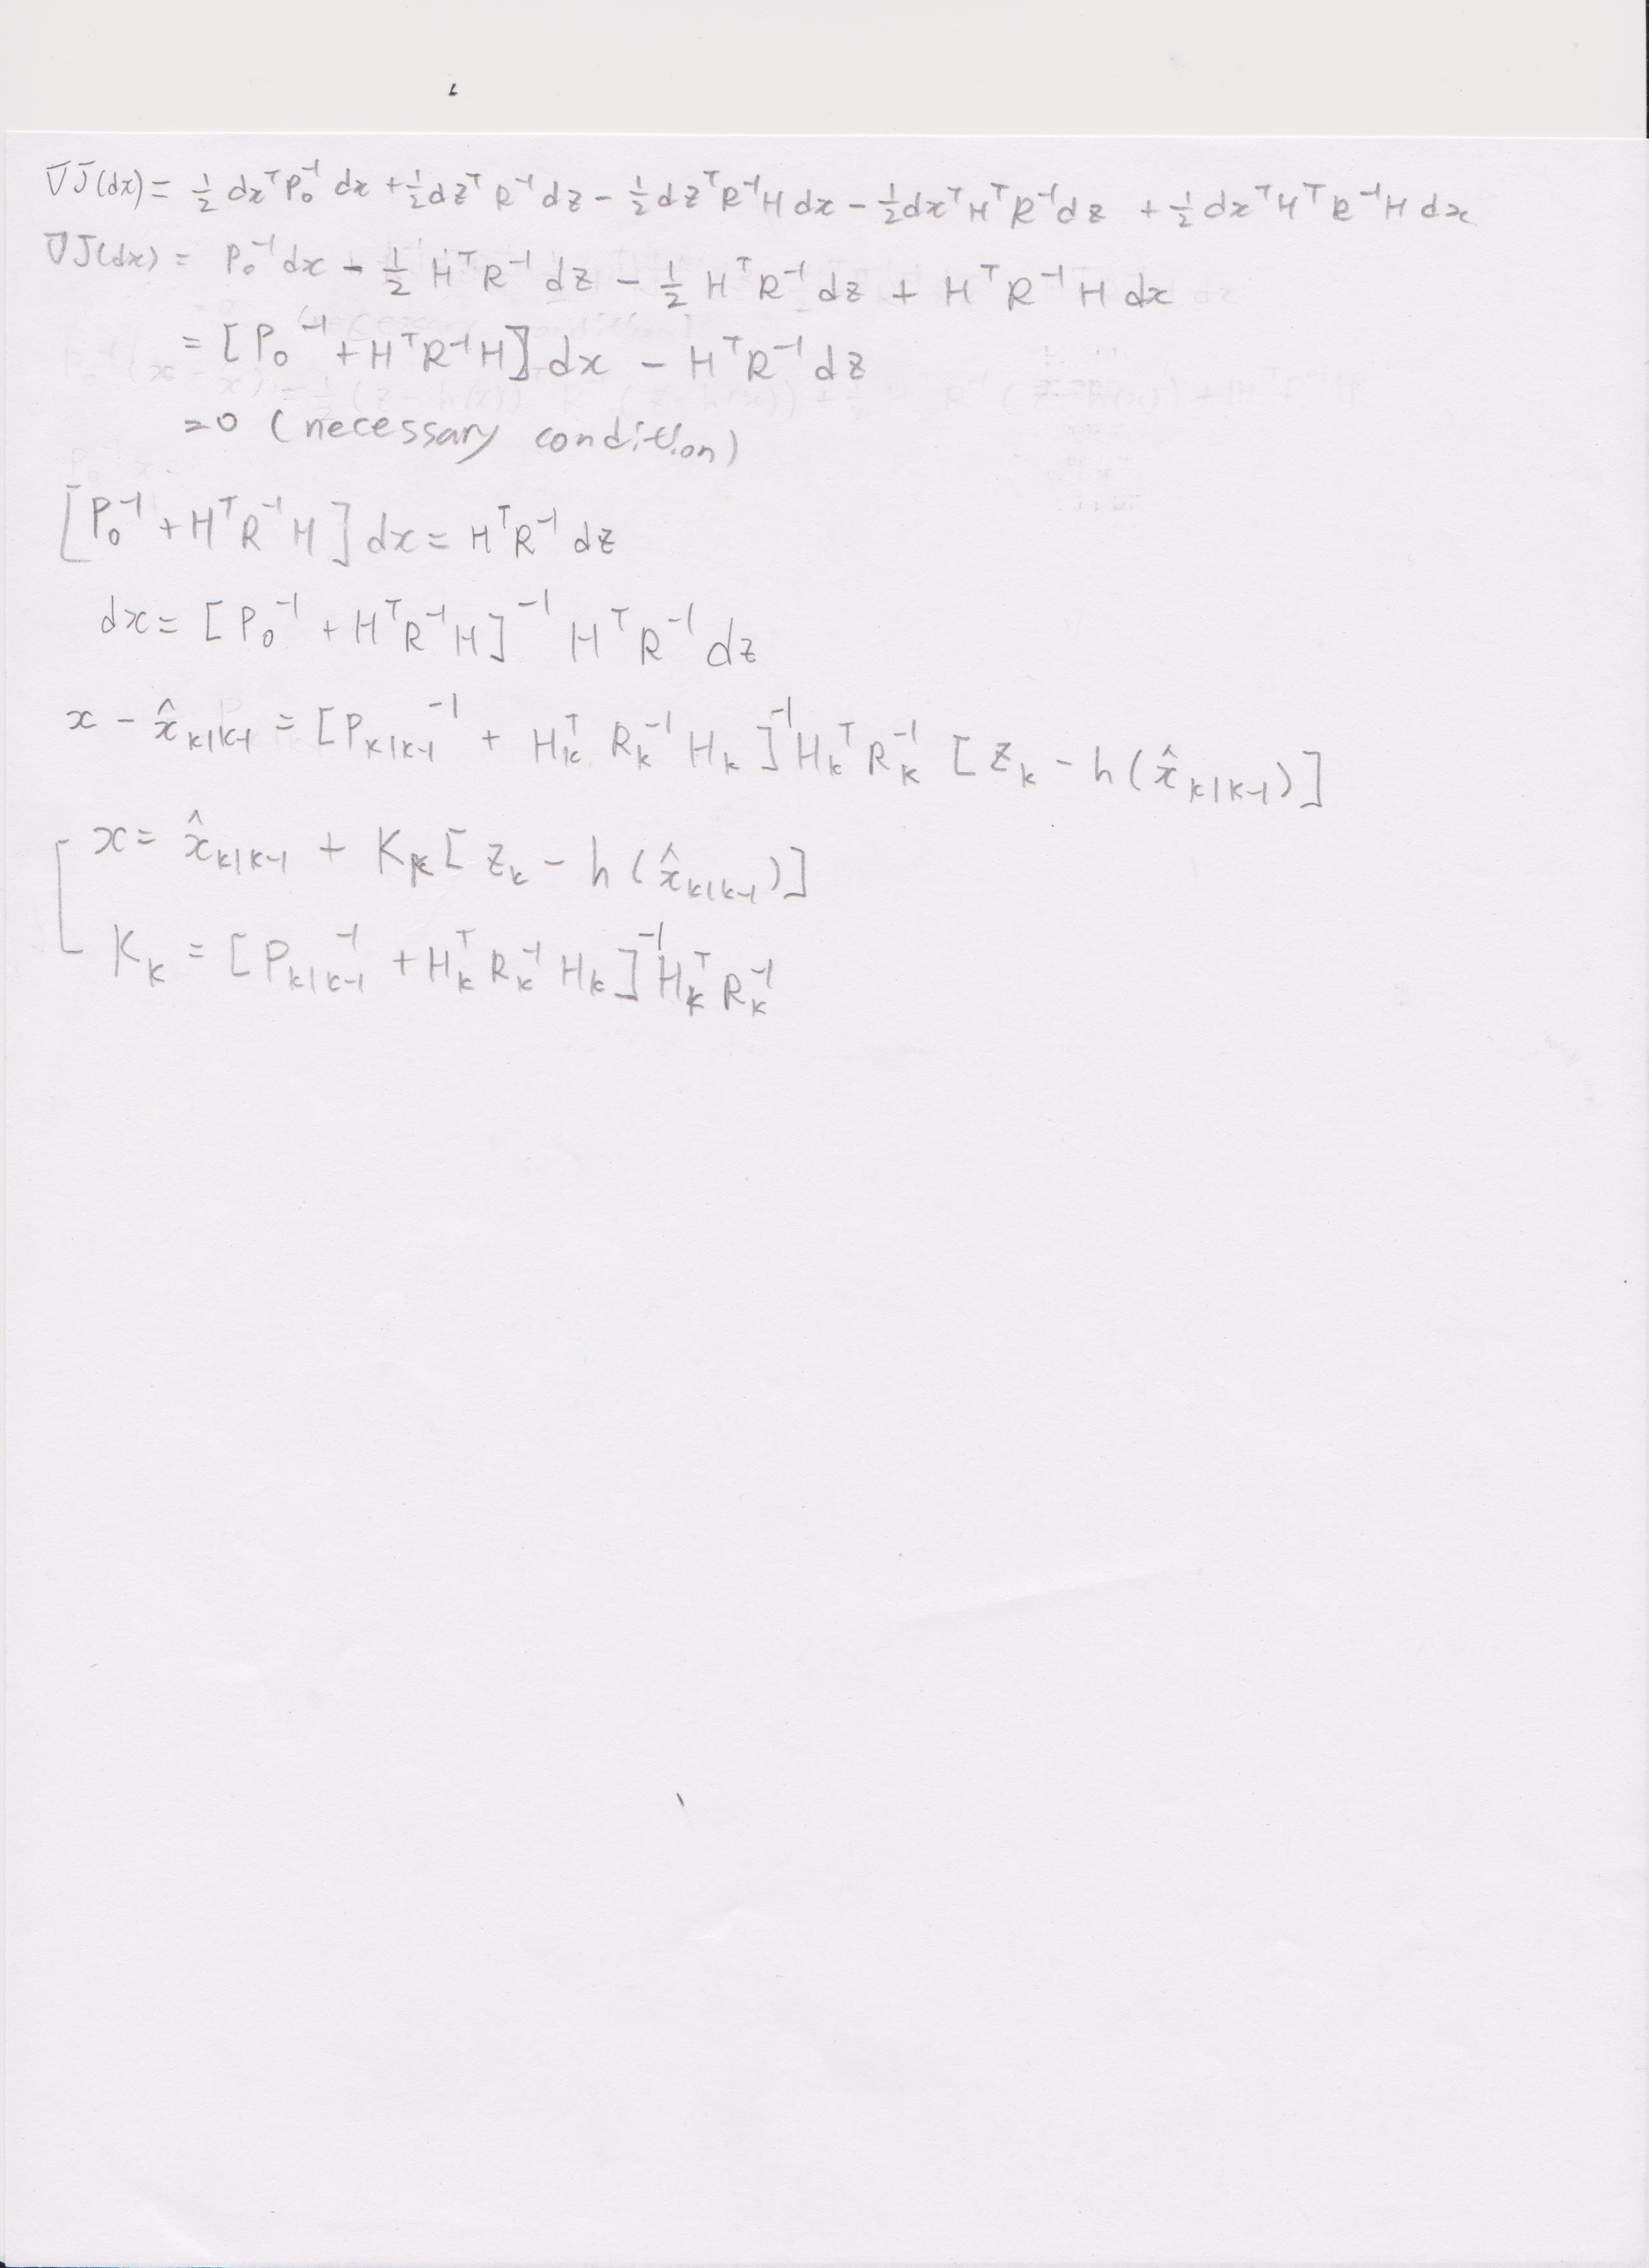 ∇J(dx) = ½ dxᵀ P₀⁻¹ dx + ½ dzᵀ R⁻¹ dz − ½ dzᵀ R⁻¹ H dx − ½ dxᵀ Hᵀ R⁻¹ dz + ½ dxᵀ Hᵀ R⁻¹ H dx
∇J(dx) = P₀⁻¹ dx − ½ Hᵀ R⁻¹ dz − ½ Hᵀ R⁻¹ dz + Hᵀ R⁻¹ H dx
= [P₀⁻¹ + Hᵀ R⁻¹ H] dx − Hᵀ R⁻¹ dz
= 0 (necessary condition)
[P₀⁻¹ + Hᵀ R⁻¹ H] dx = Hᵀ R⁻¹ dz
dx = [P₀⁻¹ + Hᵀ R⁻¹ H]⁻¹ Hᵀ R⁻¹ dz
x − x̂_{k|k-1} = [P_{k|k-1}⁻¹ + H_kᵀ R_k⁻¹ H_k]⁻¹ H_kᵀ R_k⁻¹ [z_k − h(x̂_{k|k-1})]
x = x̂_{k|k-1} + K_k [z_k − h(x̂_{k|k-1})]
K_k = [P_{k|k-1}⁻¹ + H_kᵀ R_k⁻¹ H_k]⁻¹ H_kᵀ R_k⁻¹